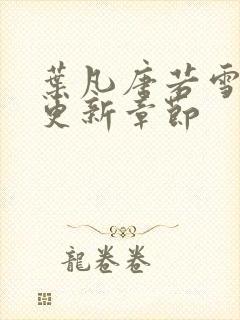 葉凡唐若雪
更新章節
龍卷卷